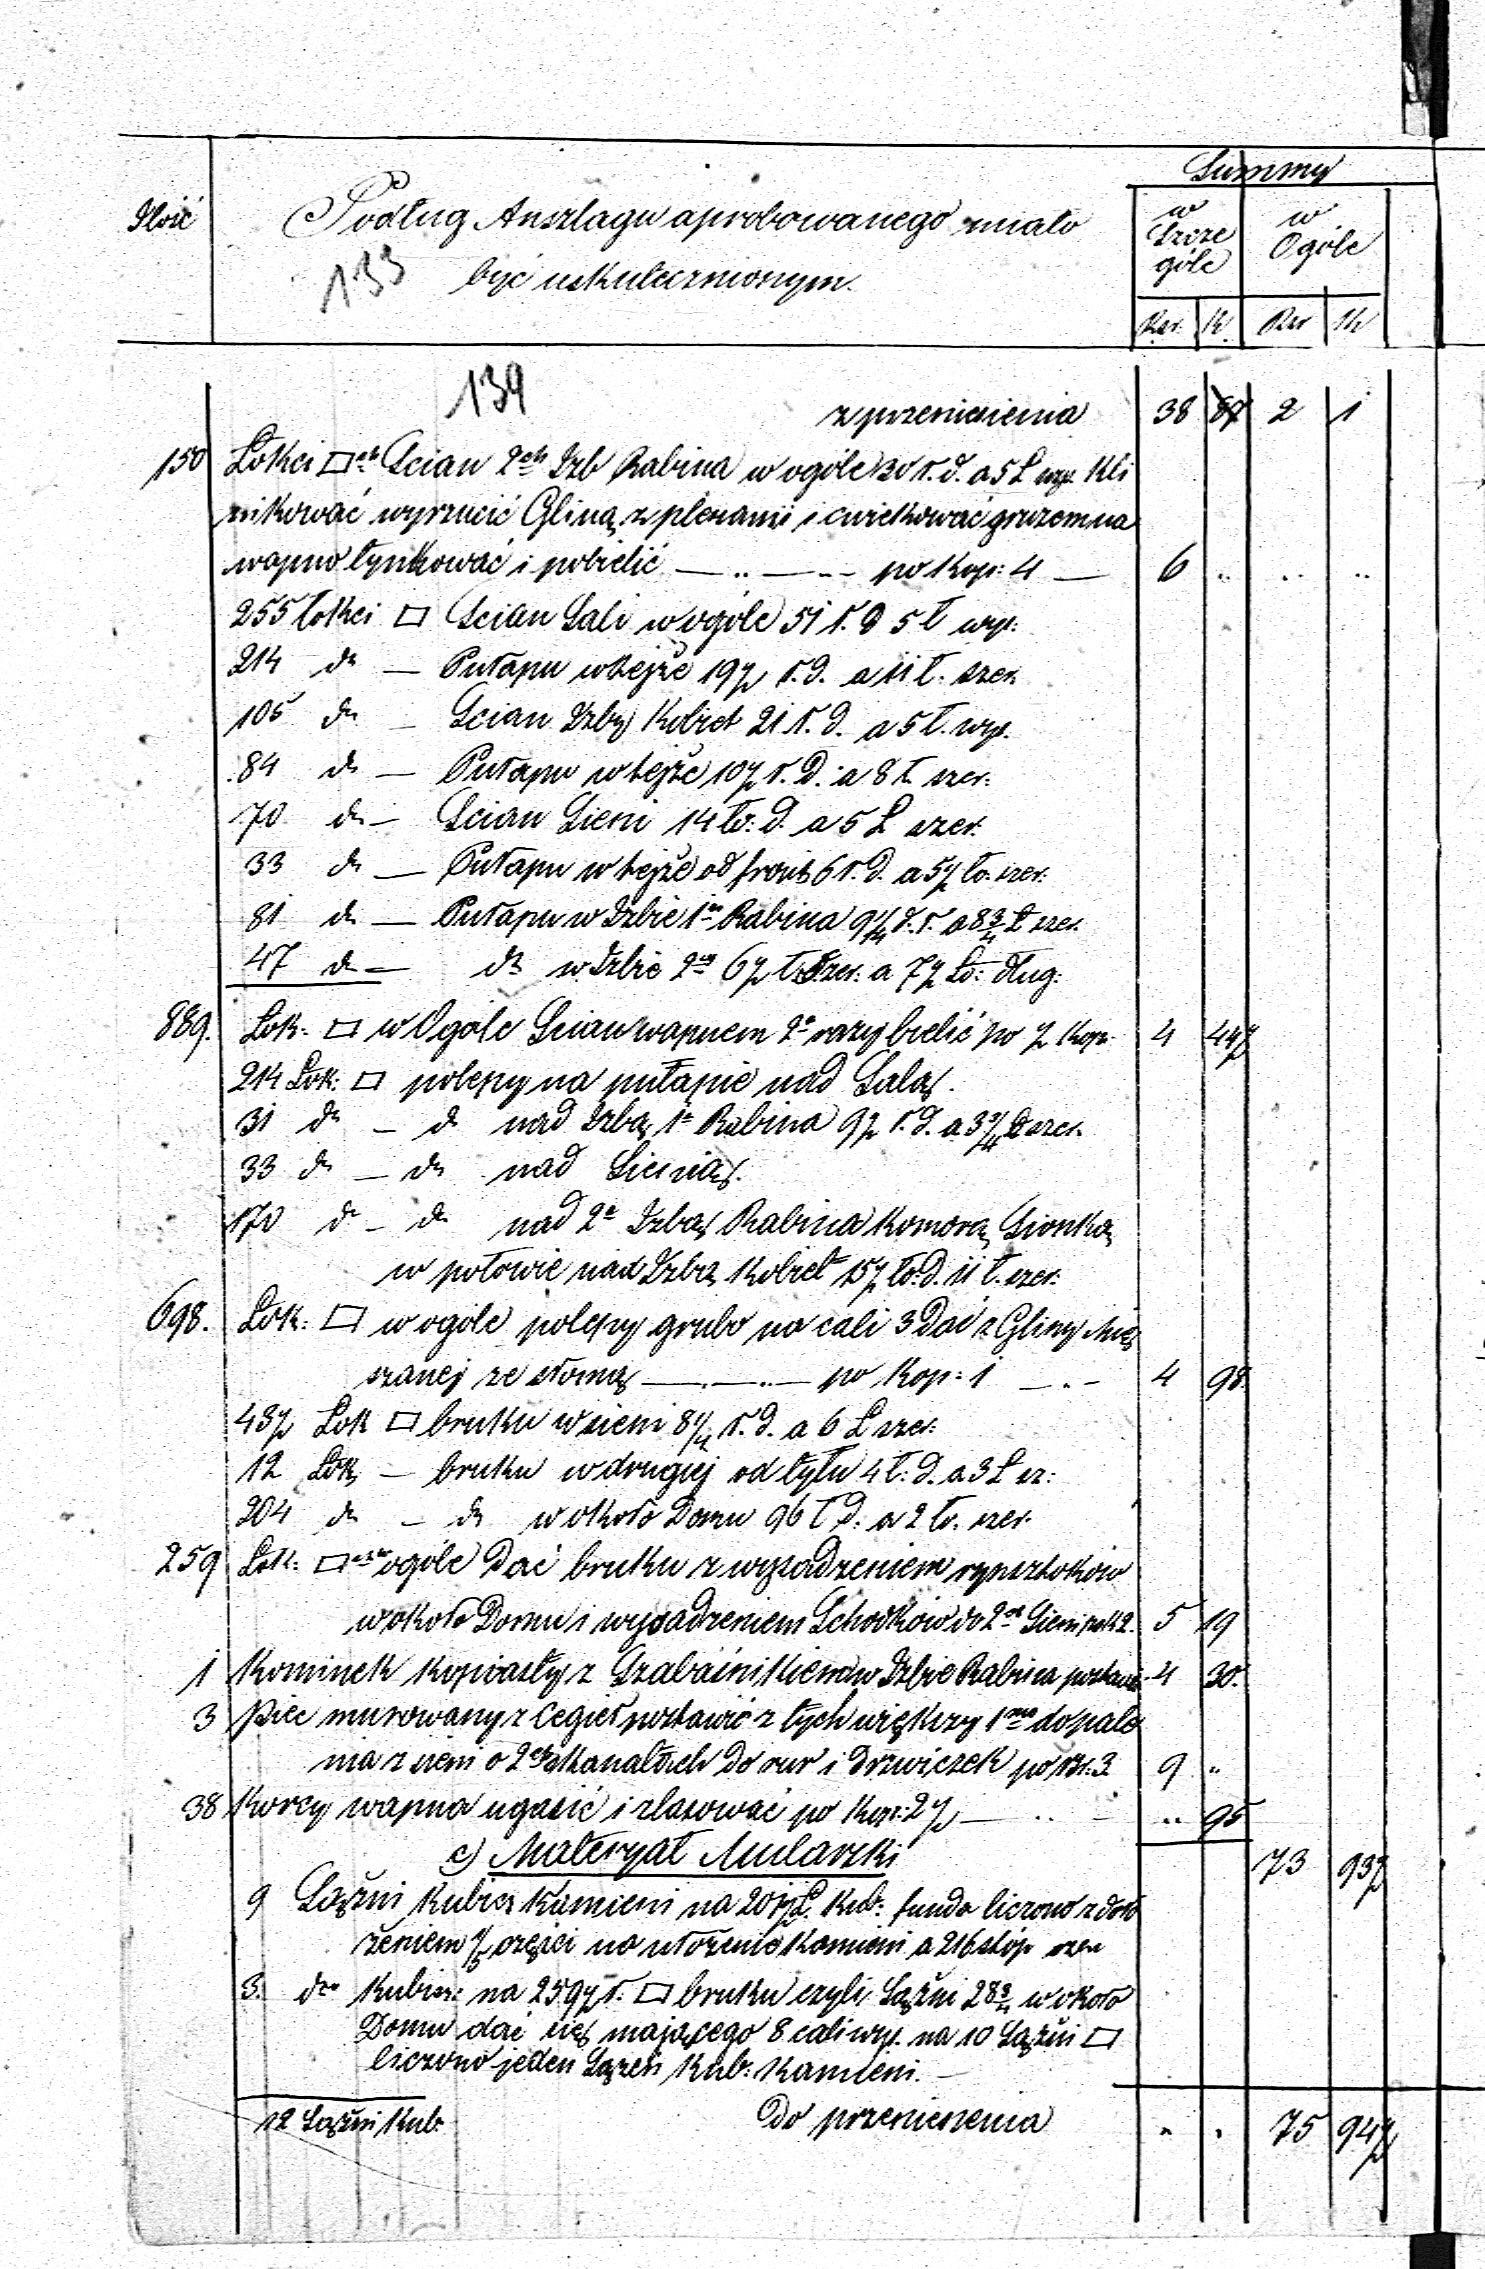 Summy
Ilość
Podług Anszlagu aprobowanego miało
być uskutecznionym.
w Szcze góle
w Ogóle
Rsr. K. Rsr K
133
139
z przeniesienia 38 87 2 1
150 Łokci □ch Scian 2ch Izb Rabina w ogóle 30 ł. d. a 5 Ł wys. Kli
nikować wyrzucić Gliną z plewami i ćwiekować gruzem na
wapno tynkować i pobielić — " — po Kop: 4 — 6 ..
255 łokci □ Scian Sali w ogóle 51 ł. d 5 ł wys.
214 do — Pułapu w tejże 19½ ł. d. a 11 ł. szer.
105 do — Scian Izby Kobiet 21 ł. d. a 5 ł. wys.
84 do — Pułapu w tejże 10½ ł. d. a 8 ł szer.
70 do — Scian Sieni 14 łó: d. a 5 Ł szer.
33 do — Pułapu w tejże od frontu 6 ł. d. a 5½ ło. szer.
81 do — Pułapu w Izbie 1éj Rabina 9¼ d. ł. a 8¾ Ł szer.
47 do — do w Izbie 2éj 6½ ł. Szer. a 7½ Ło: dług:
889. Łok. □ w Ogóle Scian wapnem 2a razy bielić po ½ Kop. 4 44½
214 Łok: □ polepy na pułapie nad Salą.
31 do — do nad Izbą 1ą Rabina 9½ ł. d. a 3¼ Ł szer.
33 do — do nad Sienią.
170 do — do nad 2ą Izbą Rabina Komorą Sionką
w połowie nad Izbą Kobiet 15½ ło: d. 11 ł. szer.
698. Łok: □ w ogóle polepy grubo na cali 3 Dać z Gliny Mię
szanej ze słomą — .. — po Kop: 1 — 4 98.
43½ Łok □ bruku w sieni 8¼ ł. d. a 6 Ł szer.
12 Łok — bruku w drugiej od tyłu 4 ł: d. a 3 Ł sz:
204 do — do w około Domu 96 ł d. a 2 ło. szer.
259 Łok: □ w ogóle Dać bruku z wysadzeniem rynsztoków
w około Domu i wysadzeniem Schodków do 2éj Sieni po k 2. 5 19
1 Kominek kopiasty z Szabaśnikiem w Izbie Rabina postawić 4 30.
3 Piec murowany z Cegieł postawić z tych większy 1 do pale
nia z sieni o 2ch kanałach do rur i drzwiczek po rsr. 3 9 "
38 Korcy wapna ugasić i zlasować po Kop: 2½ — .. 95
73 93½
c) Materyał Mularski
9 Sążni Kubicz Kamieni na Ł. Kub: funda liczono z doło
żeniem części na ułożenie Kamieni a 216 stóp szen
3. do Kubicz: na 259½ ł. □ bruku czyli Sążni 28¾ w około
Domu dać się mającego 8 cali wys. na 10 Sążni □
liczono jeden Sążeń Kub: Kamieni. —
12 Sążni Kub. Do przeniesienia " " 75 94½